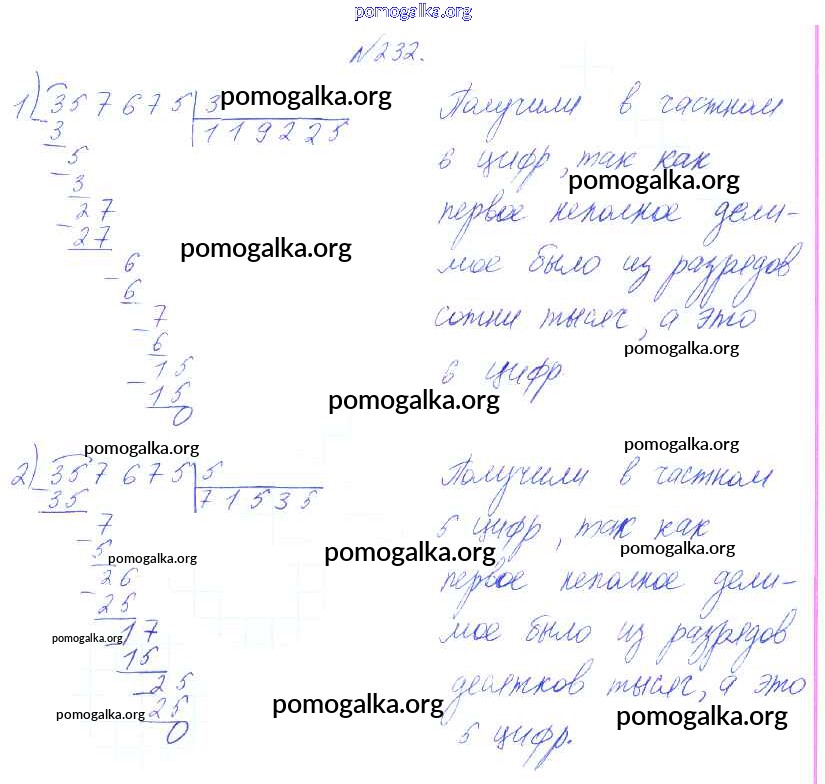 pomogalka.org
№232.
1) 357675 3 pomogalka.org
119225
3
5
3
27
27
6
6
7
6
15
15
0
pomogalka.org
Получили в частном
6 цифр, так как
pomogalka.org
первое неполное дели-
мое было из разрядов
сотни тысяч, а это
pomogalka.org
6 цифр.
pomogalka.org
pomogalka.org
pomogalka.org
2) 357675 5
71535
35
7
5
26
25
17
15
25
25
0
pomogalka.org
pomogalka.org
pomogalka.org
Получили в частном
5 цифр, так как
pomogalka.org
pomogalka.org
первое неполное дели-
мое было из разрядов
десятков тысяч, а это
pomogalka.org
pomogalka.org
5 цифр.